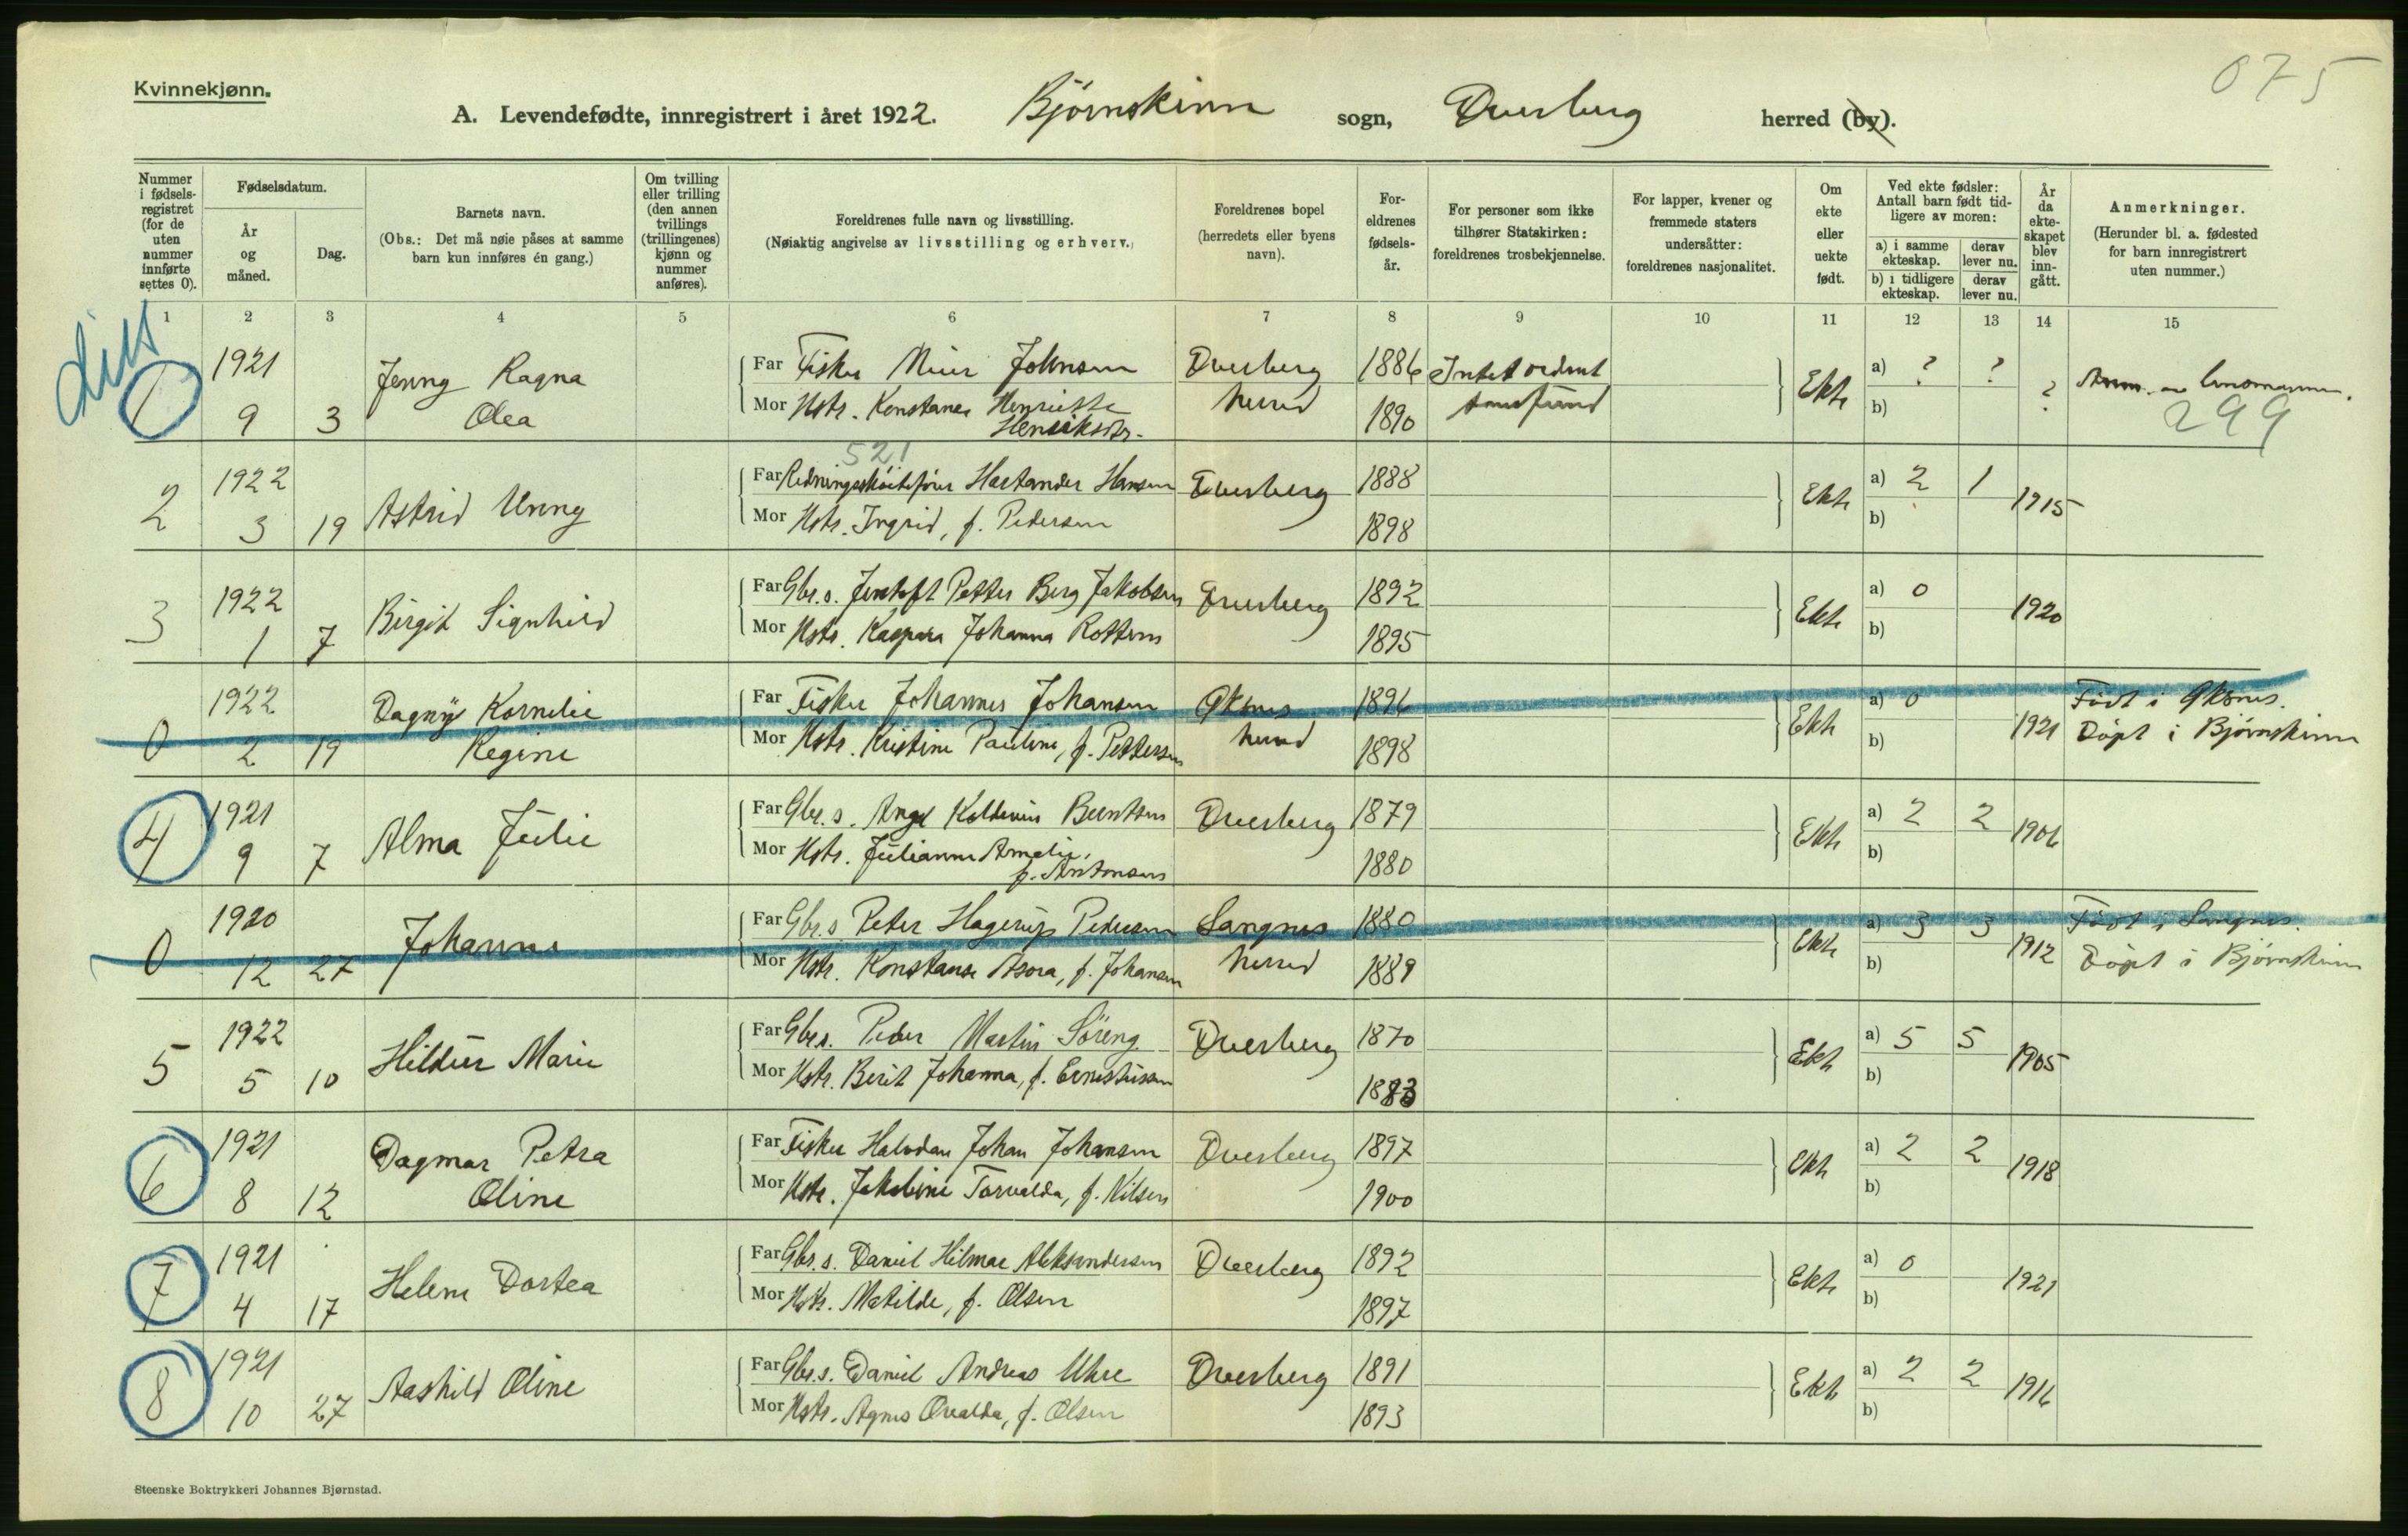 Kvinnekjønn.
075
A. Levendefødte, innregistrert i året 1922. Bjørnskinn sogn, Dverberg herred (by).
Nummer i fødselsregistret (for de uten nummer innførte settes 0).
Fødselsdatum.
År og måned.
Dag.
Barnets navn.
(Obs.: Det må nøie påses at samme barn kun innføres én gang.)
Om tvilling eller trilling (den annen tvillings (trillingenes) kjønn og nummer anføres).
Foreldrenes fulle navn og livsstilling.
(Nøiaktig angivelse av livsstilling og erhverv.)
Foreldrenes bopel (herredets eller byens navn).
Foreldrenes fødselsår.
For personer som ikke tilhører Statskirken: foreldrenes trosbekjennelse.
For lapper, kvener og fremmede staters undersåtter: foreldrenes nasjonalitet.
Om ekte eller uekte født.
Ved ekte fødsler: Antall barn født tidligere av moren:
a) i samme ekteskap.
derav lever nu.
b) i tidligere ekteskap.
derav lever nu.
År da ekteskapet blev inngått.
Anmerkninger.
(Herunder bl. a. fødested for barn innregistrert uten nummer.)
1 2 3 4 5 6 7 8 9 10 11 12 13 14 15
1921 Jenny Ragna Far Fisker Meier Johnsen Dverberg 1886 Intet ordnet Ekte a) ? ? ?
1 9 3 Olea Mor Hstr. Konstanse Henriette herred 1890 b)
Henriksdtr. 299
521
1922 Far Redningsskøitefører Hartander Hansen Dverberg 1888 a) 2 1
2 3 19 Astrid Unny Mor Hstr. Ingrid, f. Pedersen 1898 Ekte b) 1915
1922 Far Gbr.s. Jentoft Petter Berg Jakobsen Dverberg 1892 a) 0
3 1 7 Birgit Signhild Mor Hstr. Kaspara Johanna Rottem 1895 Ekte b) 1920
1922 Dagny Kornelie Far Fisker Johannes Johansen Øksnes 1896 a) 0 Født i Øksnes.
0 2 19 Regine Mor Hstr. Kristine Pauline, f. Pettersen herred 1898 Ekte b) 1921 Døpt i Bjørnskinn
1921 Far Gbr.s. Angel Koldevin Berntsen Dverberg 1879 a) 2 2
4 9 7 Alma Julie Mor Hstr. Julianne Amalie, Ekte b) 1906
f. Antonsen 1880
1920 Far Gbr.s Peter Hagerup Pedersen Langnes 1880 a) 3 3 Født i Langnes.
0 12 27 Johanne Mor Hstr. Konstanse Asora, f. Johansen herred 1889 Ekte b) 1912 Døpt i Bjørnskinn
1922 Far Gbr.s. Peder Martin Søreng Dverberg 1870 a) 5 5
5 5 10 Hildur Marie Mor Hstr. Berit Johanna, f. Ernestussen 1883 Ekte b) 1905
1921 Dagmar Petra Far Fisker Halvdan Johan Johansen Dverberg 1897 a) 2 2
6 8 12 Oline Mor Hstr. Jakobine Torvalda, f. Nilsen 1900 Ekte b) 1918
1921 Far Gbr.s. Daniel Hilmar Aleksandersen Dverberg 1892 a) 0
7 4 17 Helene Dortea Mor Hstr. Matilde, f. Olsen 1897 Ekte b) 1921
1921 Far Gbr.s. Daniel Andreas Uhre Dverberg 1891 a) 2 2
8 10 27 Aashild Oline Mor Hstr. Agnes Ovalda, f. Olsen 1893 Ekte b) 1916
Steenske Boktrykkeri Johannes Bjørnstad.